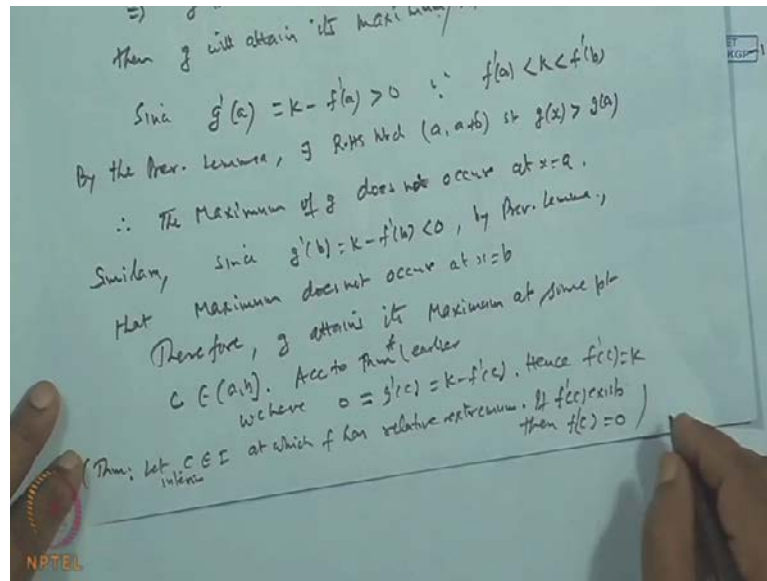 =) g
then g will attain its maximum
Since g'(a) = k - f'(a) > 0 ∵ f'(a) < k < f'(b)
By the Prev. Lemma, ∃ R.H.S Nbd (a, a+δ) st g(x) > g(a)
∴ The Maximum of g does not occur at x=a.
Similarly, since g'(b) = k - f'(b) < 0, by Prev. Lemma,
that Maximum does not occur at x=b
Therefore, g attains its Maximum at some pt
C ∈ (a,b). Acc to Thm* (earlier
we have 0 = g'(c) = k - f'(c). Hence f'(c) = k
(Thm: Let C ∈ I at which f has relative extremum. If f'(c) exists
interior
then f'(c) = 0 )
KGP
NPTEL